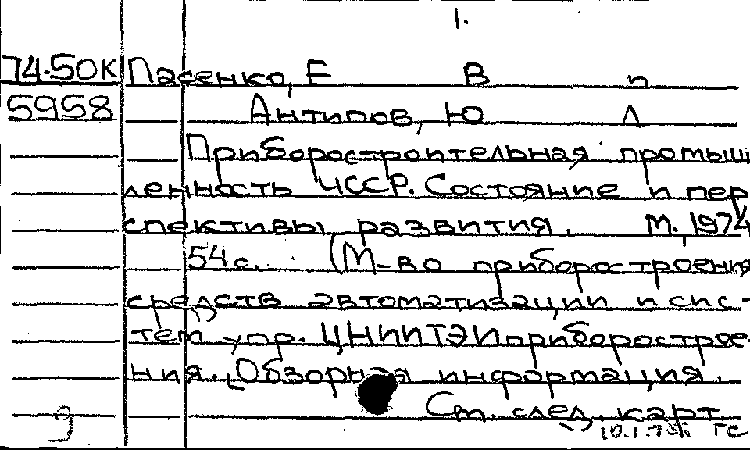 1.
74.50К Пасенко, Е В п
5958 Антипов, Ю Л
Приборостроительная промыш
ленность ЧССР. Состояние и пер
спективы развития. М., 1974
54 с. (М-во приборостроения
средств автоматизации и сис-
тем упр. ЦНИИТЭИприборострое-
ния. Обзорная информация.
См. след. карт